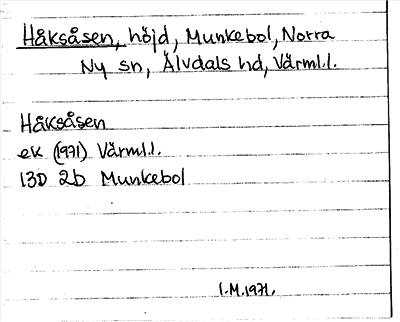 Håksåsen, höjd, Munkebol, Norra
Ny sn, Älvdals hd, Värml.l.
Håksåsen
ek (1971) Värml.l.
13D 2b Munkebol
I.M.1971.